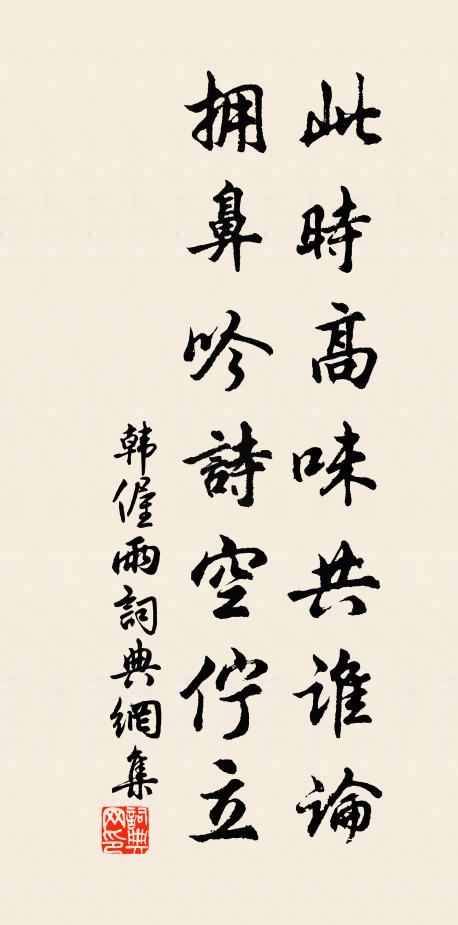 此時高味共誰論
拥鼻吟詩空佇立
韩偓雨詞典網集
詞典
网印